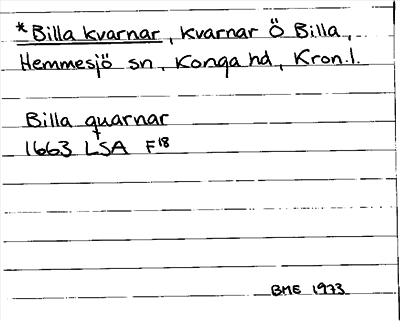 *Billa kvarnar, kvarnar Ö Billa,
Hemmesjö sn, Konga hd, Kron.l.
Billa quarnar
1663 LSA F18
BME 1973